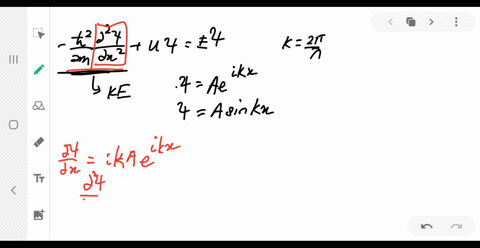 -ħ²/2m ∂²ψ/∂x² + Uψ = Eψ
K = 2π/λ
↳ KE
ψ = Ae^{ikx}
ψ = A sin kx
∂ψ/∂x = ikAe^{ikx}
∂²ψ